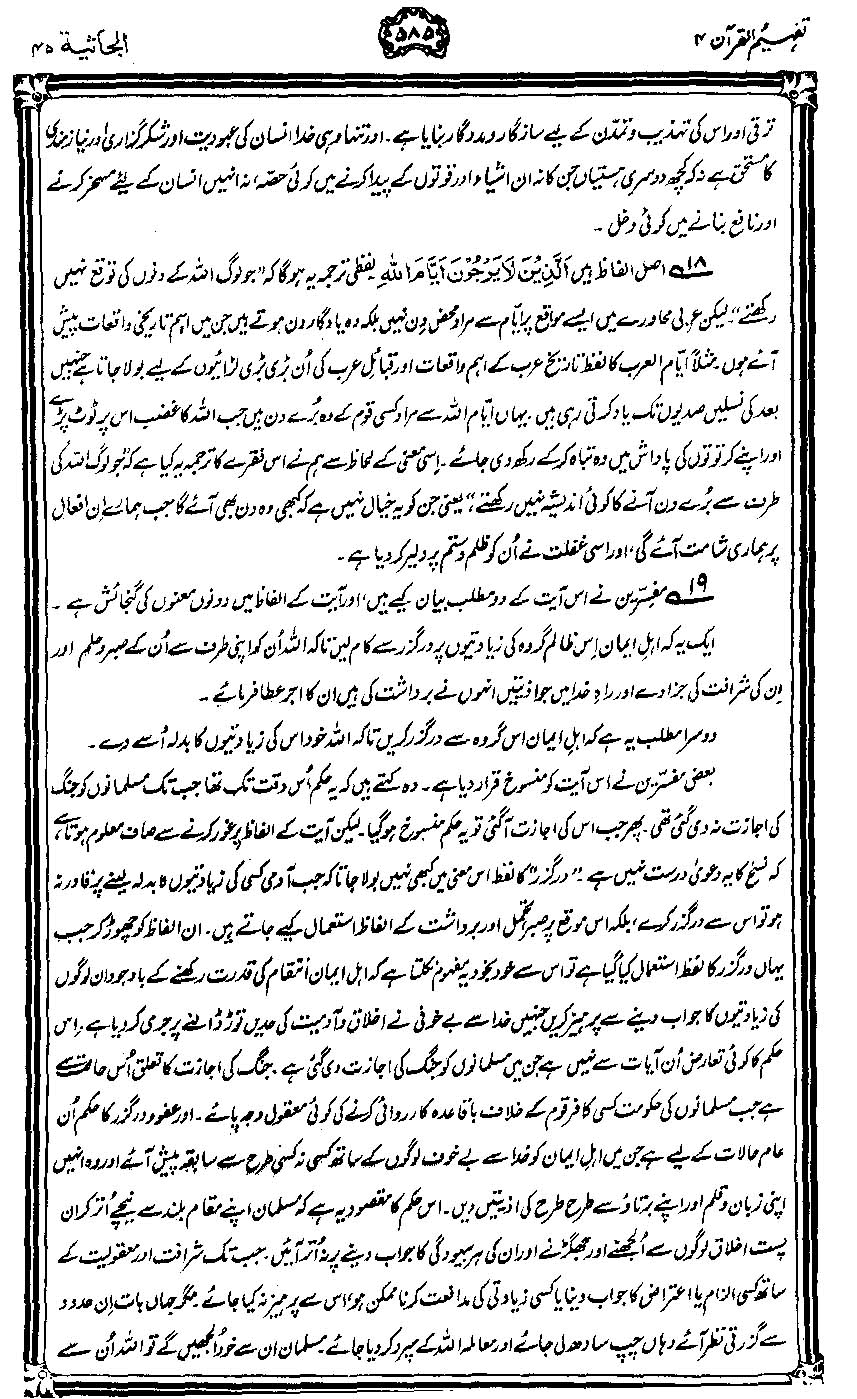 تفہیم القرآن ۴
۵۸۵
الجاثیۃ ۴۵
ترقی اور اس کی تہذیب و تمدّن کے لیے سازگار و مددگار بنایا ہے۔ اور تنہا وہی خدا انسان کی عبودیت اور شکر گزاری اور نیاز مندی
کا مستحق ہے نہ کہ کچھ دوسری ہستیاں جن کا نہ ان اشیاء اور قوتوں کے پیدا کرنے میں کوئی حصہ، نہ انہیں انسان کے لیے مسخر کرنے
اور نافع بنانے میں کوئی دخل۔
۱۸ اصل الفاظ ہیں اَلَّذِیْنَ لَا یَرْجُوْنَ اَیَّامَ اللہِ۔ لفظی ترجمہ یہ ہوگا کہ ”جو لوگ اللہ کے دنوں کی توقع نہیں
رکھتے“۔ لیکن عربی محاورے میں ایسے مواقع پر ایّام سے مراد محض دن نہیں بلکہ وہ یادگار دن ہوتے ہیں جن میں اہم تاریخی واقعات پیش
آئے ہوں۔ مثلاً ایّام العرب کا لفظ تاریخ عرب کے اہم واقعات اور قبائل عرب کی اُن بڑی بڑی لڑائیوں کے لیے بولا جاتا ہے جنہیں
بعد کی نسلیں صدیوں تک یاد کرتی رہی ہیں۔ یہاں ایّام اللہ سے مراد کسی قوم کے وہ بُرے دن ہیں جب اللہ کا غضب اس پر ٹوٹ پڑے
اور اپنے کرتوتوں کی پاداش میں وہ تباہ کر کے رکھ دی جائے۔ اِسی معنی کے لحاظ سے ہم نے اس فقرے کا ترجمہ یہ کیا ہے کہ ”جو لوگ اللہ کی
طرف سے بُرے دن آنے کا کوئی اندیشہ نہیں رکھتے“، یعنی جن کو یہ خیال نہیں ہے کہ کبھی وہ دن بھی آئے گا جب ہمارے اِن افعال
پر ہماری شامت آئے گی، اور اسی غفلت نے اُن کو ظلم و ستم پر دلیر کر دیا ہے۔
۱۹ مفسّرین نے اس آیت کے دو مطلب بیان کیے ہیں، اور آیت کے الفاظ میں دونوں معنوں کی گنجائش ہے۔
ایک یہ کہ اہلِ ایمان اِس ظالم گروہ کی زیادتیوں پر درگزر سے کام لیں تاکہ اللہ اُن کو اپنی طرف سے اُن کے صبر و حلم اور
اِن کی شرافت کی جزا دے اور راہِ خدا میں جو اذیتیں انہوں نے برداشت کی ہیں ان کا اجر عطا فرمائے۔
دوسرا مطلب یہ ہے کہ اہلِ ایمان اس گروہ سے درگزر کریں تاکہ اللہ خود اس کی زیادتیوں کا بدلہ اُسے دے۔
بعض مفسّرین نے اس آیت کو منسوخ قرار دیا ہے۔ وہ کہتے ہیں کہ یہ حکم اُس وقت تک تھا جب تک مسلمانوں کو جنگ
کی اجازت نہ دی گئی تھی۔ پھر جب اس کی اجازت آگئی تو یہ حکم منسوخ ہوگیا۔ لیکن آیت کے الفاظ پر غور کرنے سے صاف معلوم ہوتا ہے
کہ نسخ کا یہ دعویٰ درست نہیں ہے۔ ”درگزر“ کا لفظ اس معنی میں کبھی نہیں بولا جاتا کہ جب آدمی کسی کی زیادتیوں کا بدلہ لینے پر قادر نہ
ہو تو اس سے درگزر کرے، بلکہ اس موقع پر صبر، تحمّل اور برداشت کے الفاظ استعمال کیے جاتے ہیں۔ ان الفاظ کو چھوڑ کر جب
یہاں درگزر کا لفظ استعمال کیا گیا ہے تو اس سے خود بخود یہ مفہوم نکلتا ہے کہ اہل ایمان انتقام کی قدرت رکھنے کے باوجود ان لوگوں
کی زیادتیوں کا جواب دینے سے پرہیز کریں جنہیں خدا سے بے خوفی نے اخلاق و آدمیت کی حدیں توڑ ڈالنے پر جری کر دیا ہے۔ اِس
حکم کا کوئی تعارض اُن آیات سے نہیں ہے جن میں مسلمانوں کو جنگ کی اجازت دی گئی ہے۔ جنگ کی اجازت کا تعلق اُس حالت سے
ہے جب مسلمانوں کی حکومت کسی کافر قوم کے خلاف باقاعدہ کارروائی کرنے کی کوئی معقول وجہ پائے۔ اور عفو و درگزر کا حکم اُن
عام حالات کے لیے ہے جن میں اہل ایمان کو خدا سے بے خوف لوگوں کے ساتھ کسی نہ کسی طرح سے سابقہ پیش آئے اور وہ انہیں
اپنی زبان و قلم اور اپنے برتاؤ سے طرح طرح کی اذیتیں دیں۔ اس حکم کا مقصود یہ ہے کہ مسلمان اپنے مقام بلند سے نیچے اُتر کر ان
پست اخلاق لوگوں سے اُلجھنے اور جھگڑنے اور ان کی ہر بیہودگی کا جواب دینے پر نہ اُتر آئیں۔ جب تک شرافت اور معقولیت کے
ساتھ کسی الزام یا اعتراض کا جواب دینا یا کسی زیادتی کی مدافعت کرنا ممکن ہو، اس سے پرہیز نہ کیا جائے۔ مگر جہاں بات اِن حدود
سے گزرتی نظر آئے وہاں چپ سادھ لی جائے اور معاملہ اللہ کے سپرد کر دیا جائے۔ مسلمان ان سے خود اُلجھیں گے تو اللہ اُن سے